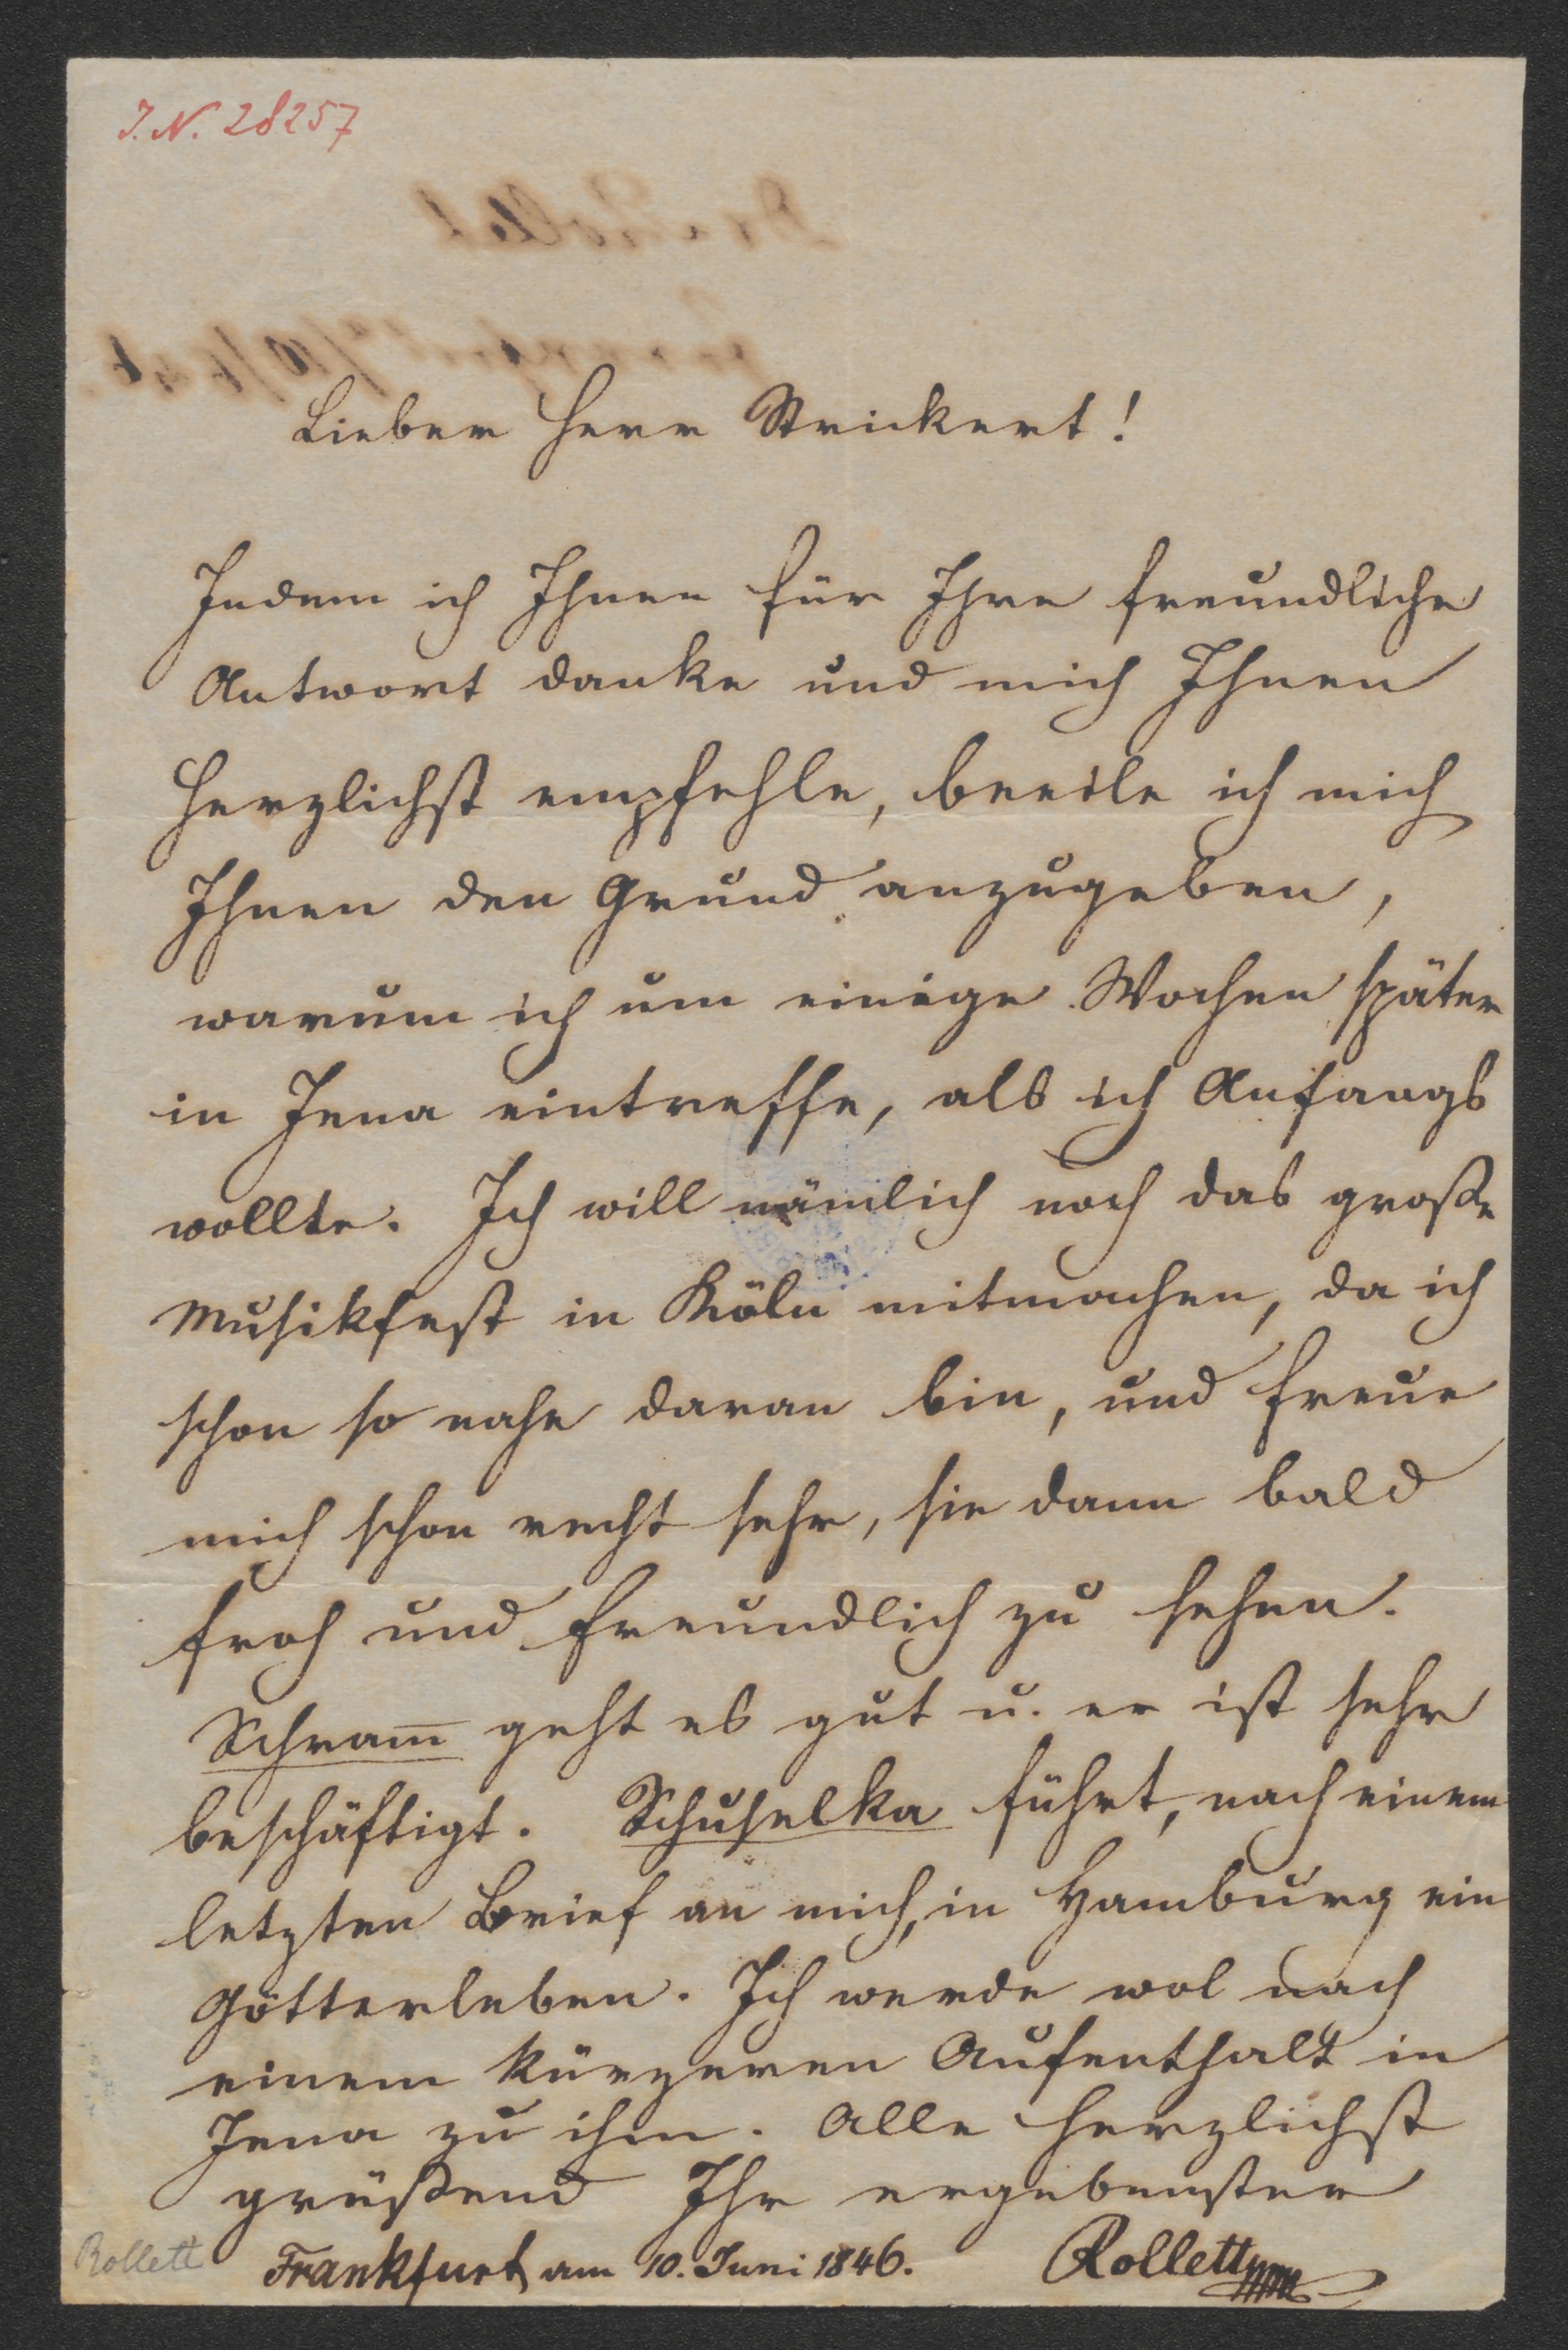 I. N. 28257
Lieber Herr Strickert!
Indem ich Ihnen für Ihre freundliche
Antwort danke und mich Ihnen
herzlichst empfehle, beeile ich mich
Ihnen den Grund anzugeben,
warum ich um einige Wochen später
in Jena eintreffe, als ich Anfangs
wollte. Ich will nämlich noch das große
Musikfest in Köln mitmachen, da ich
schon so nahe daran bin, und freue
mich schon recht sehr, sie dann bald
froh und freundlich zu sehen.
Schram̅ geht es gut u. er ist sehr
beschäftigt. Schuselka führt, nach einem
letzten Brief an mich, in Hamburg ein
Götterleben. Ich werde wol nach
einem kürzeren Aufenthalt in
Jena zu ihm. Alle herzlichst
grüßend Ihr ergebenster
Rollett Frankfurt am 10. Juni 1846. Rollett